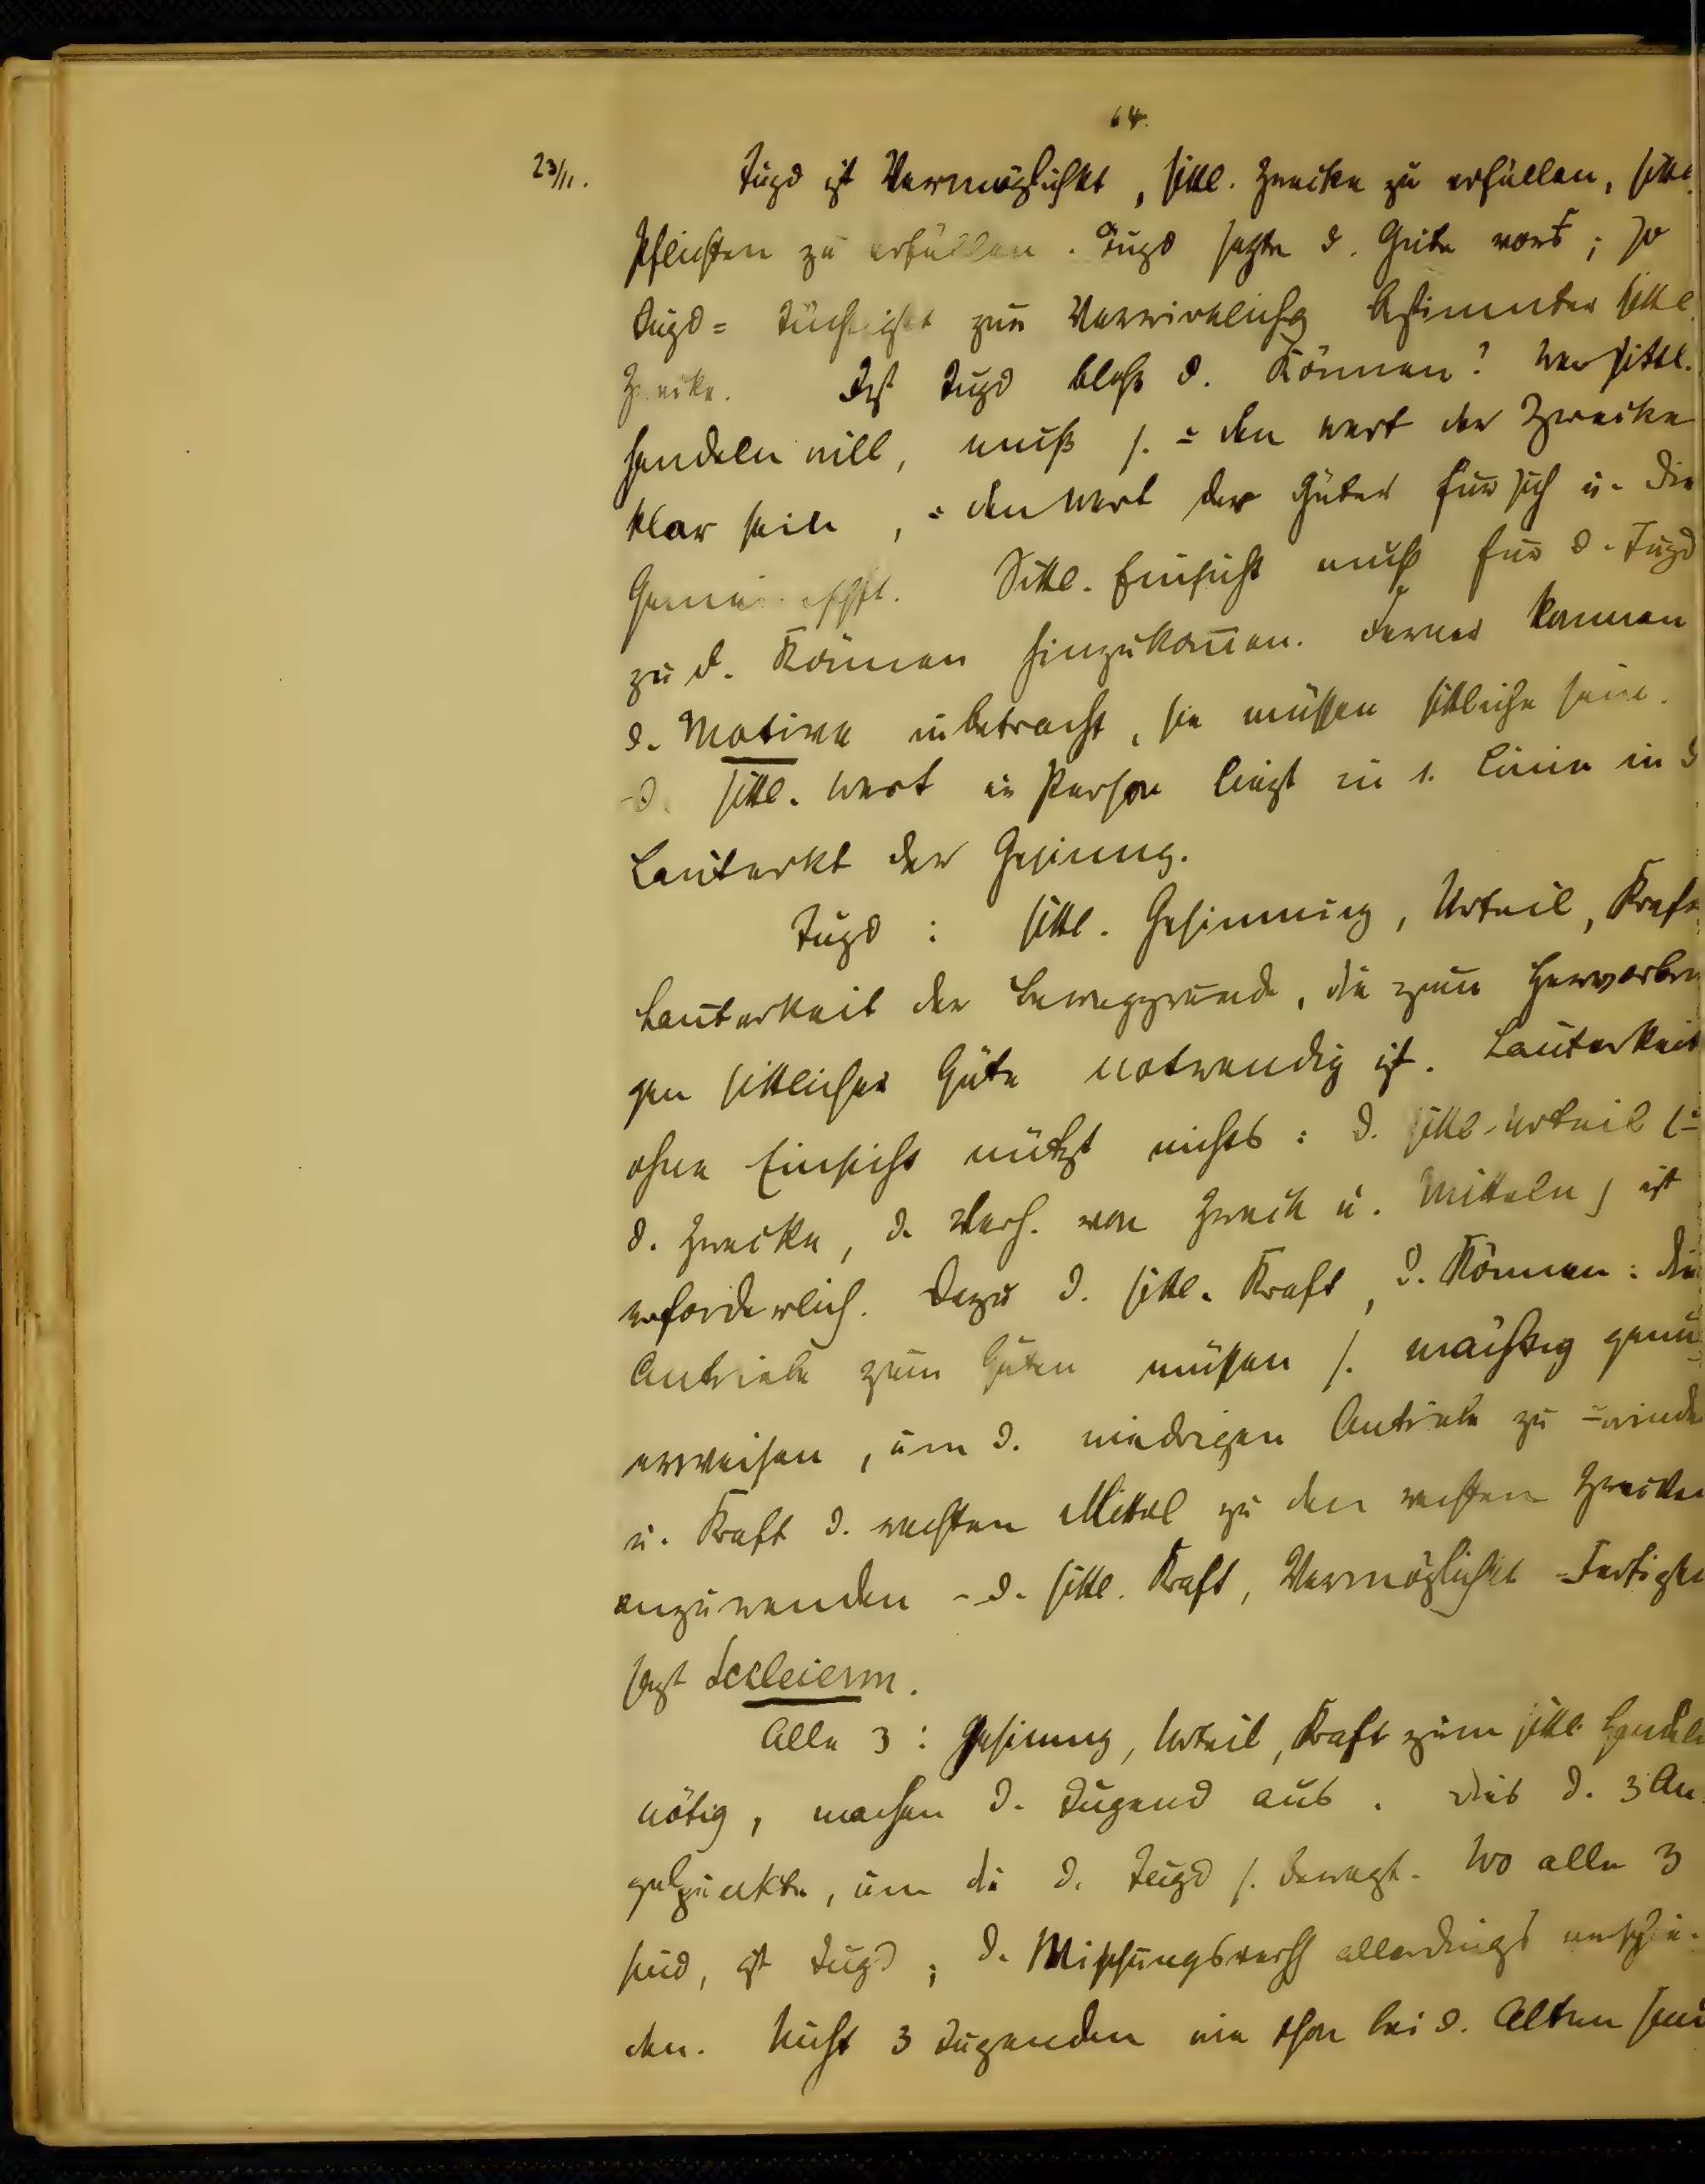 64.
23/11. Tugd ist Vermöglichkt, sittl. Zwecke zu erfüllen, sittl.
Pflichten zu erfüllen. Tugd setzte d. Güte voraus; so
Tugd = Tüchtigkt zur Verwirklichg bestimmter sittl.
Zwecke. Ist Tugd bloß d. Können? Wer sittl.
handeln will, muß s. = den wert der Zwecke
klar sein, = den Wert der Güter für sich u. die
Gemeinschft. Sittl. Einsicht muß für d. Tugd
zu d. Können hinzukom̄en. Ferner kommen
d. Motive inbetracht, sie müssen sittliche sein.
- D. sittl. Wert er Person liegt in 1. Linie in d
Lauterkt der Gesinnung.
Tugd: sittl. Gesinnung, Urteil, Kraft
Lauterkeit der Beweggründe, die zum Hervorbrin
gen sittlicher Güte notwendig ist. Lauterkeit
ohne Einsicht nützt nichts: d. sittl. Urteil (=
d. Zwecke, d. Verh. von Zweck u. Mitteln) ist
erforderlich. Dazu d. sittl. Kraft, d. Können: die
Antriebe zum Guten müssen s. mächtig genug
erweisen, um d. niedrigen Antriebe zu =winden
u. Kraft d. rechten Mittel zu den rechten Zwecken
anzuwenden - d. sittl. Kraft, Vermöglichkt - Fertigkt
sagt Schleierm.
Alle 3: Gesinnung, Urteil, Kraft zum sittl. Handeln
nötig, machen d. Tugend aus. Dies d. 3 An
gelpunkte, um die d. Tugd s. bewegt. Wo alle 3
sind, ist Tugd; d. Mischungsverh allerdings verschie-
den. Nicht 3 Tugenden wie schon bei d. Alten sind